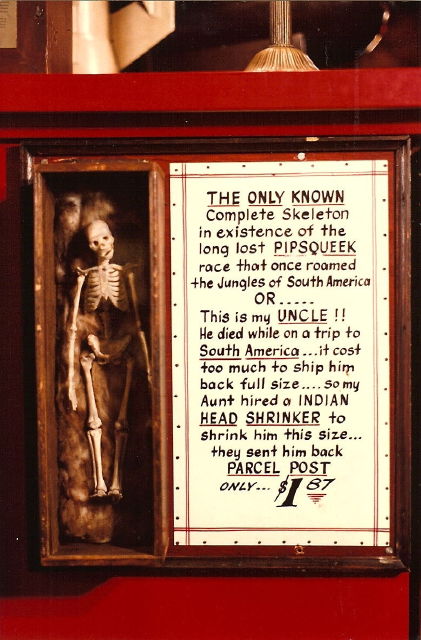 THE ONLY KNOWN
Complete Skeleton
in existence of the
long lost PIPSQUEEK
race that once roamed
the Jungles of South America
OR.....
This is my UNCLE !!
He died while on a trip to
South America...it cost
too much to ship him
back full size....so my
Aunt hired a INDIAN
HEAD SHRINKER to
shrink him this size...
they sent him back
PARCEL POST
ONLY... $1 87